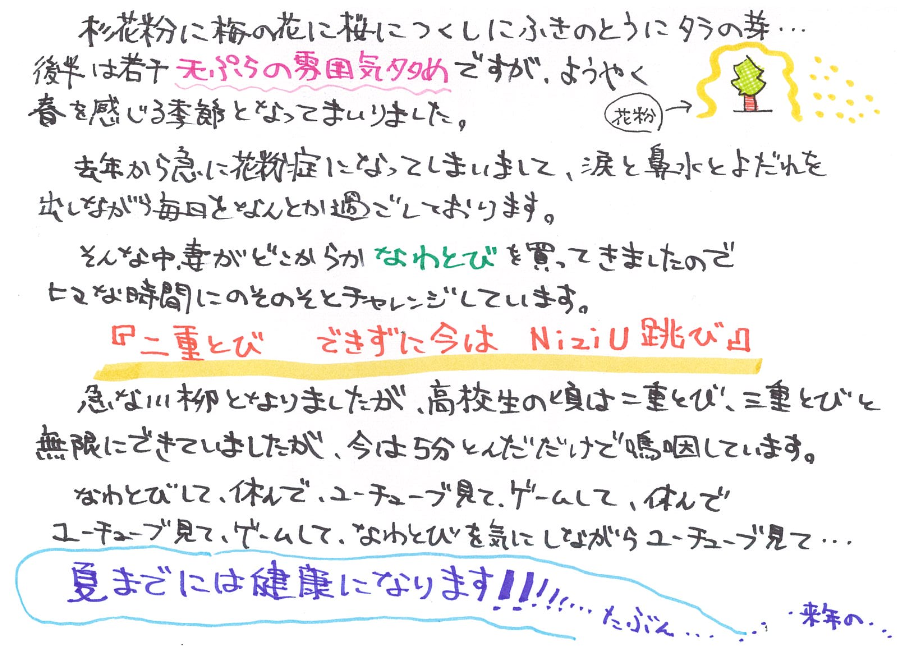 杉花粉に梅の花に桜につくしにふきのとうにタラの芽…
後半は若干天ぷらの雰囲気多めですが、ようやく
春を感じる季節となってまいりました。
花粉
去年から急に花粉症になってしまいまして、涙と鼻水とよだれを
出しながら毎日をなんとか過ごしております。
そんな中、妻がどこからかなわとびを買ってきましたので
ヒマな時間にのそのそとチャレンジしています。
『二重とび できずに今は NiziU跳び』
急な川柳となりましたが、高校生の頃は二重とび、三重とびと
無限にできていましたが、今は5分とんだだけで嗚咽しています。
なわとびして、休んで、ユーチューブ見て、ゲームして、休んで
ユーチューブ見て、ゲームして、なわとびを気にしながらユーチューブ見て…
夏までには健康になります!!!!!…
たぶん…
来年の…